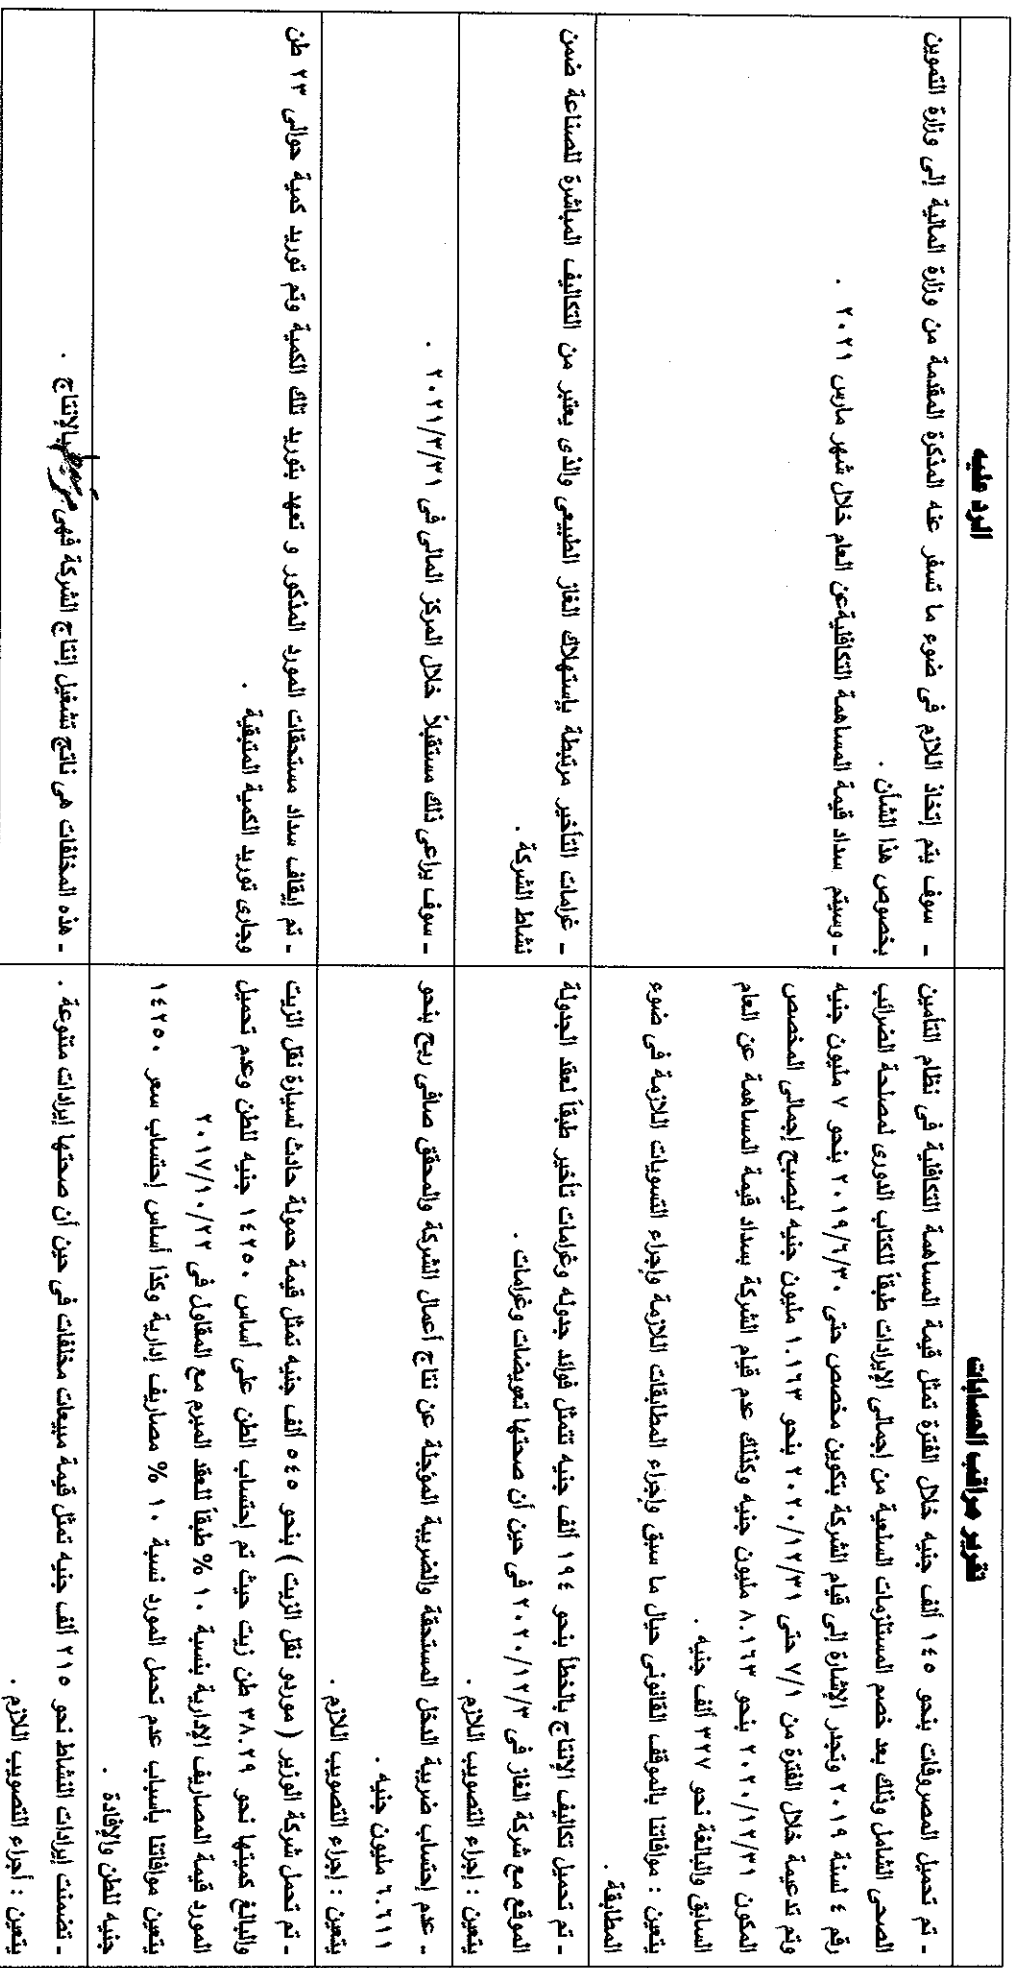 تقرير مراقب الحسابات
الرد عليه
ـ تم تحميل المصروفات بنحو ١٤٥ ألف جنيه خلال الفترة تمثل قيمة المساهمة التكافلية فى نظام التأمين
الصحى الشامل وذلك بعد خصم المستلزمات السلعية من إجمالى الإيرادات طبقاً للكتاب الدورى لمصلحة الضرائب
رقم ٤ لسنة ٢٠١٩ وتجدر الإشارة إلى قيام الشركة بتكوين مخصص حتى ٢٠١٩/٦/٣٠ بنحو ٧ مليون جنيه
وتم تدعيمة خلال الفترة من ٧/١ حتى ٢٠٢٠/١٢/٣١ بنحو ١.١٦٣ مليون جنيه ليصبح إجمالى المخصص
المكون ٢٠٢٠/١٢/٣١ بنحو ٨.١٦٣ مليون جنيه وكذلك عدم قيام الشركة بسداد قيمة المساهمة عن العام
السابق والبالغة نحو ٣٢٧ ألف جنيه .
يتعين : موافاتنا بالموقف القانونى حيال ما سبق وإجراء المطابقات اللازمة وإجراء التسويات اللازمة فى ضوء
المطابقة .
ـ سوف يتم إتخاذ اللازم فى ضوء ما تسفر عنه المذكرة المقدمة من وزارة المالية إلى وزارة التموين
بخصوص هذا الشأن .
ـ وسيتم سداد قيمة المساهمة التكافلية عن العام خلال شهر مارس ٢٠٢١ .
ـ تم تحميل تكاليف الإنتاج بالخطأ بنحو ١٩٤ ألف جنيه تتمثل فوائد جدوله وغرامات تأخير طبقاً لعقد الجدولة
الموقع مع شركة الغاز فى ٢٠٢٠/١٢/٣ فى حين أن صحتها تعويضات وغرامات .
يتعين : إجراء التصويب اللازم .
ـ غرامات التأخير مرتبطة بإستهلاك الغاز الطبيعى والذى يعتبر من التكاليف المباشرة للصناعة ضمن
نشاط الشركة .
ـ عدم إحتساب ضريبة الدخل المستحقة والضريبة المؤجلة عن نتاج أعمال الشركة والمحقق صافى ربح بنحو
٦.٦١١ مليون جنيه .
يتعين : إجراء التصويب اللازم .
ـ سوف يراعى ذلك مستقبلاً خلال المركز المالى فى ٢٠٢١/٣/٣١ .
ـ تم تحمل شركة الوزير ( موردو نقل الزيت ) بنحو ٥٤٥ ألف جنيه تمثل قيمة حمولة حادث لسيارة نقل الزيت
والبالغ كميتها نحو ٣٨.٢٩ طن زيت حيث تم إحتساب الطن على أساس ١٤٢٥٠ جنيه للطن وعدم تحميل
المورد قيمة المصاريف الإدارية بنسبة ١٠ % طبقاً للعقد المبرم مع المقاول فى ٢٠١٧/١٠/٢٢
يتعين موافاتنا بأسباب عدم تحمل المورد نسبة ١٠ % مصاريف إدارية وكذا أساس إحتساب سعر ١٤٢٥٠
جنيه للطن والإفادة .
ـ تم إيقاف سداد مستحقات المورد المذكور و تعهد بتوريد تلك الكمية وتم توريد كمية حوالى ٢٣ طن
وجارى توريد الكمية المتبقية .
ـ تضمنت إيرادات النشاط نحو ٢١٥ ألف جنيه تمثل قيمة مبيعات مخلفات فى حين أن صحتها إيرادات متنوعة .
يتعين : أجراء التصويب اللازم .
ـ هذه المخلفات هى ناتج تشغيل إنتاج الشركة فهى بالإنتاج .